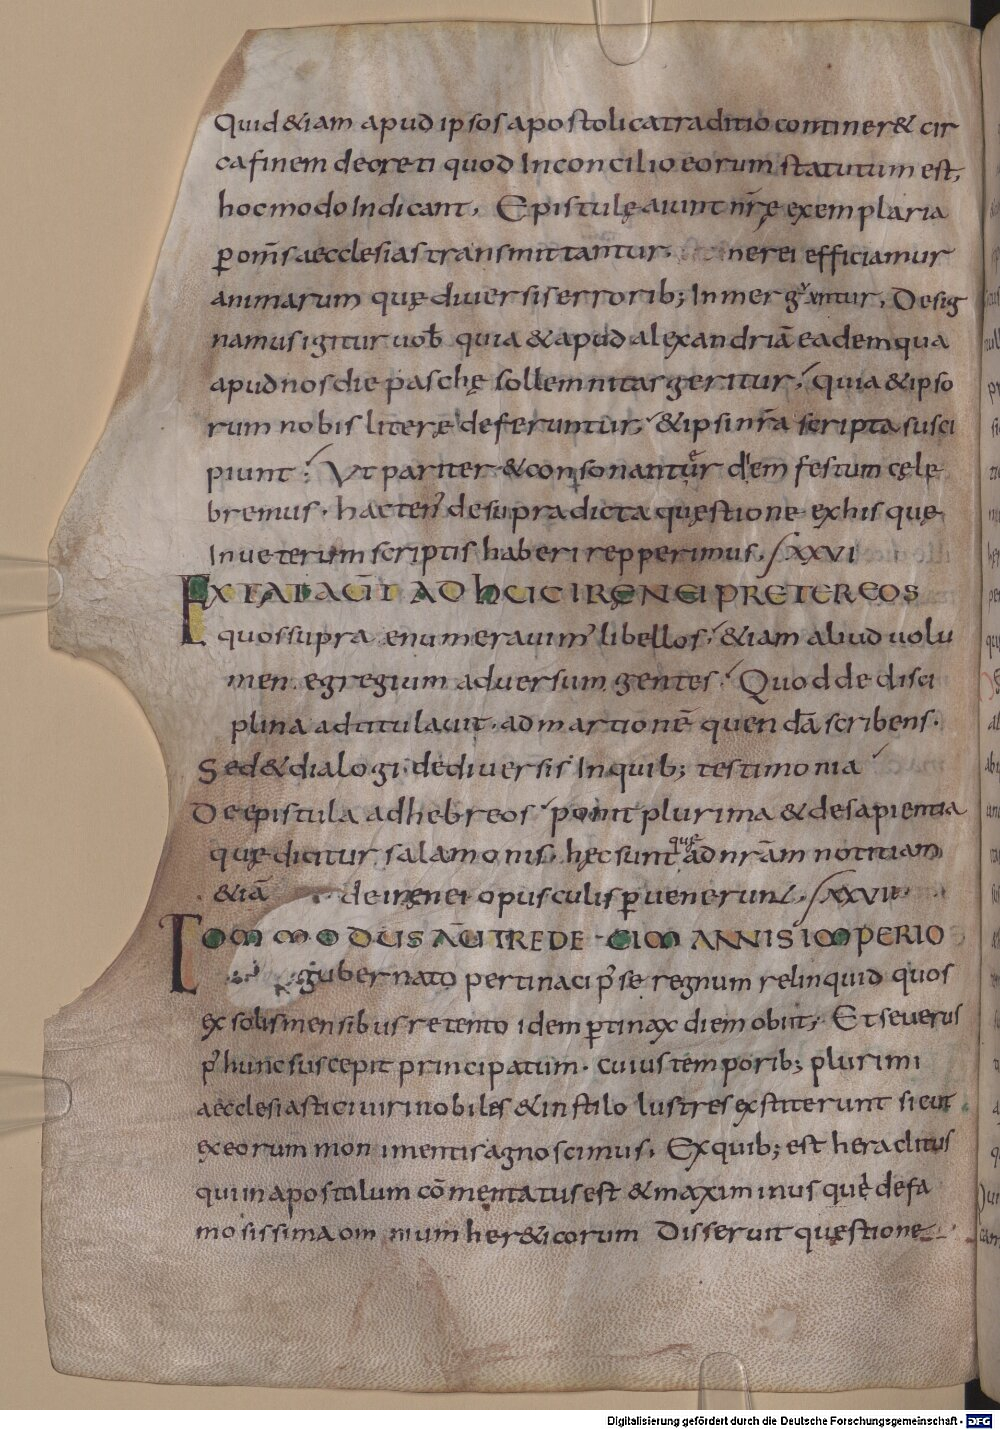 Quid &iam apud ipsos apostolica traditio continer& cir
ca finem decreti quod In concilio eorum statutum est,
hoc modo Indicant, Epistulę aiunt nr̄ę exemplaria
ꝑ om̄s aecclesias transmittantur, ne rei efficiamur
animarum quę diuersis errorib; Inmerguantur, Desig
namus igitur uob̄ quia & apud alexandriā eadem qua
apud nos die paschę sollemnitas geritur, quia & ipso
rum nobis literę deferuntur, & ipsi nr̄a scripta susci
piunt, Vt pariter & consonanter dīem festum cęle
bremus. hacten' de supradicta questione ex his quę
In ueterum scriptis haberi repperimus, XXVI
EXTAT AUT̄ ADHUC IRENEI PRETER EOS
quos supra enumerauim' libellos, &iam aliud uolu
men egregium aduersum gentes, Quod de disci
plina adtitulauit. ad martionē quendā scribens.
Sed & dialogi. de diuersis In quib; testimonia
De epistula ad hebreos ponit plurima & de sapientia
quę dicitur salamonis, hęc sunt quę ad nr̄am notitiam
&iā de irenei opusculis ꝑuenerunt, XXVII
COMMODUS AŪT TREDECIM ANNIS IMPERIO
gubernato pertinaci p' se regnum relinquid quos
ex solis mensibus retento idem ꝑtinax diem obiit, Et seuerus
p' hunc suscepit principatum. cuius temporib; plurimi
aecclesiastici uiri nobiles & in stilo lustres extiterunt sicut
ex eorum monimentis agnoscimus, Ex quib; est heraclitus
qui in apostolum cōmentatus est & maximinus què de fa
mosissima omnium her&icorum Disseruit quęstione
Digitalisierung gefördert durch die Deutsche Forschungsgemeinschaft - DFG